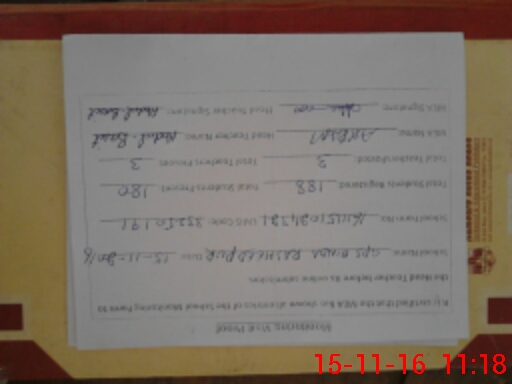 Monitoring Visit Proof
It is certified that the MEA has shown all entries of the School Monitoring Form to
the Head Teacher before its online submission.
School Name: GPS BINDA RASHEEDPUR Date: 15-11-2016
School Form No: EMIS Code:
Total Students Registered: 188 Total Students Present: 180
Total Teachers Posted: 3 Total Teachers Present: 3
MEA Name: AKBAR Head Teacher Name: Abdul Basit
MEA Signature: Head Teacher Signature: Abdul Basit
15-11-16 11:18